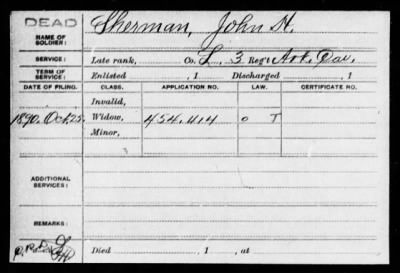 DEAD
NAME OF SOLDIER: Sherman, John H.
SERVICE: Late rank, Co. L, 3 Reg't Ark. Cav.
TERM OF SERVICE: Enlisted , 1 Discharged , 1
DATE OF FILING. CLASS. APPLICATION NO. LAW. CERTIFICATE NO.
Invalid,
1890. Oct. 25. Widow, 454.414 O T
Minor,
ADDITIONAL SERVICES:
REMARKS:
Died , 1 , at